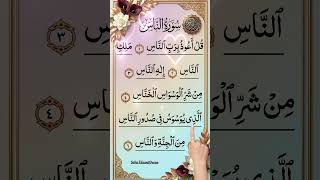 سُورَةُ النَّاسِ
قُلْ أَعُوذُ بِرَبِّ النَّاسِ ١ مَلِكِ
النَّاسِ ٢ إِلَٰهِ النَّاسِ ٣
مِنْ شَرِّ الْوَسْوَاسِ الْخَنَّاسِ ٤
الَّذِي يُوَسْوِسُ فِي صُدُورِ النَّاسِ
مِنَ الْجِنَّةِ وَالنَّاسِ
النَّاسِ ٣
مِنْ شَرِّ ٤